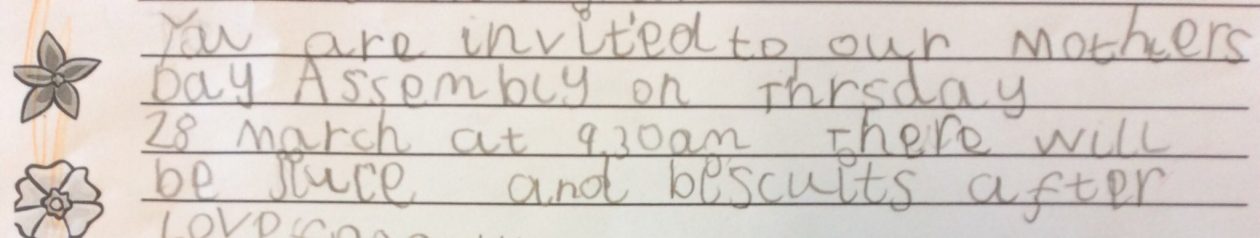 You are invited to our Mothers
Day Assembly on Thrsday
28 March at 9.30am There will
be Jiuce and bescuits after
Love